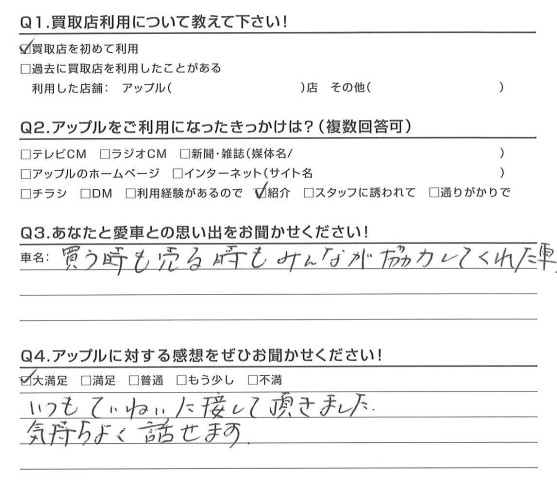 Q1.買取店利用について教えて下さい!
☑買取店を初めて利用
□過去に買取店を利用したことがある
利用した店舗: アップル( )店 その他( )
Q2.アップルをご利用になったきっかけは?(複数回答可)
□テレビCM □ラジオCM □新聞・雑誌(媒体名/ )
□アップルのホームページ □インターネット(サイト名 )
□チラシ □DM □利用経験があるので ☑紹介 □スタッフに誘われて □通りがかりで
Q3.あなたと愛車との思い出をお聞かせください!
車名: 買う時も売る時もみんなが協力してくれた車
Q4.アップルに対する感想をぜひお聞かせください!
☑大満足 □満足 □普通 □もう少し □不満
いつもていねいに接して頂きました.
気持ちよく話せます.